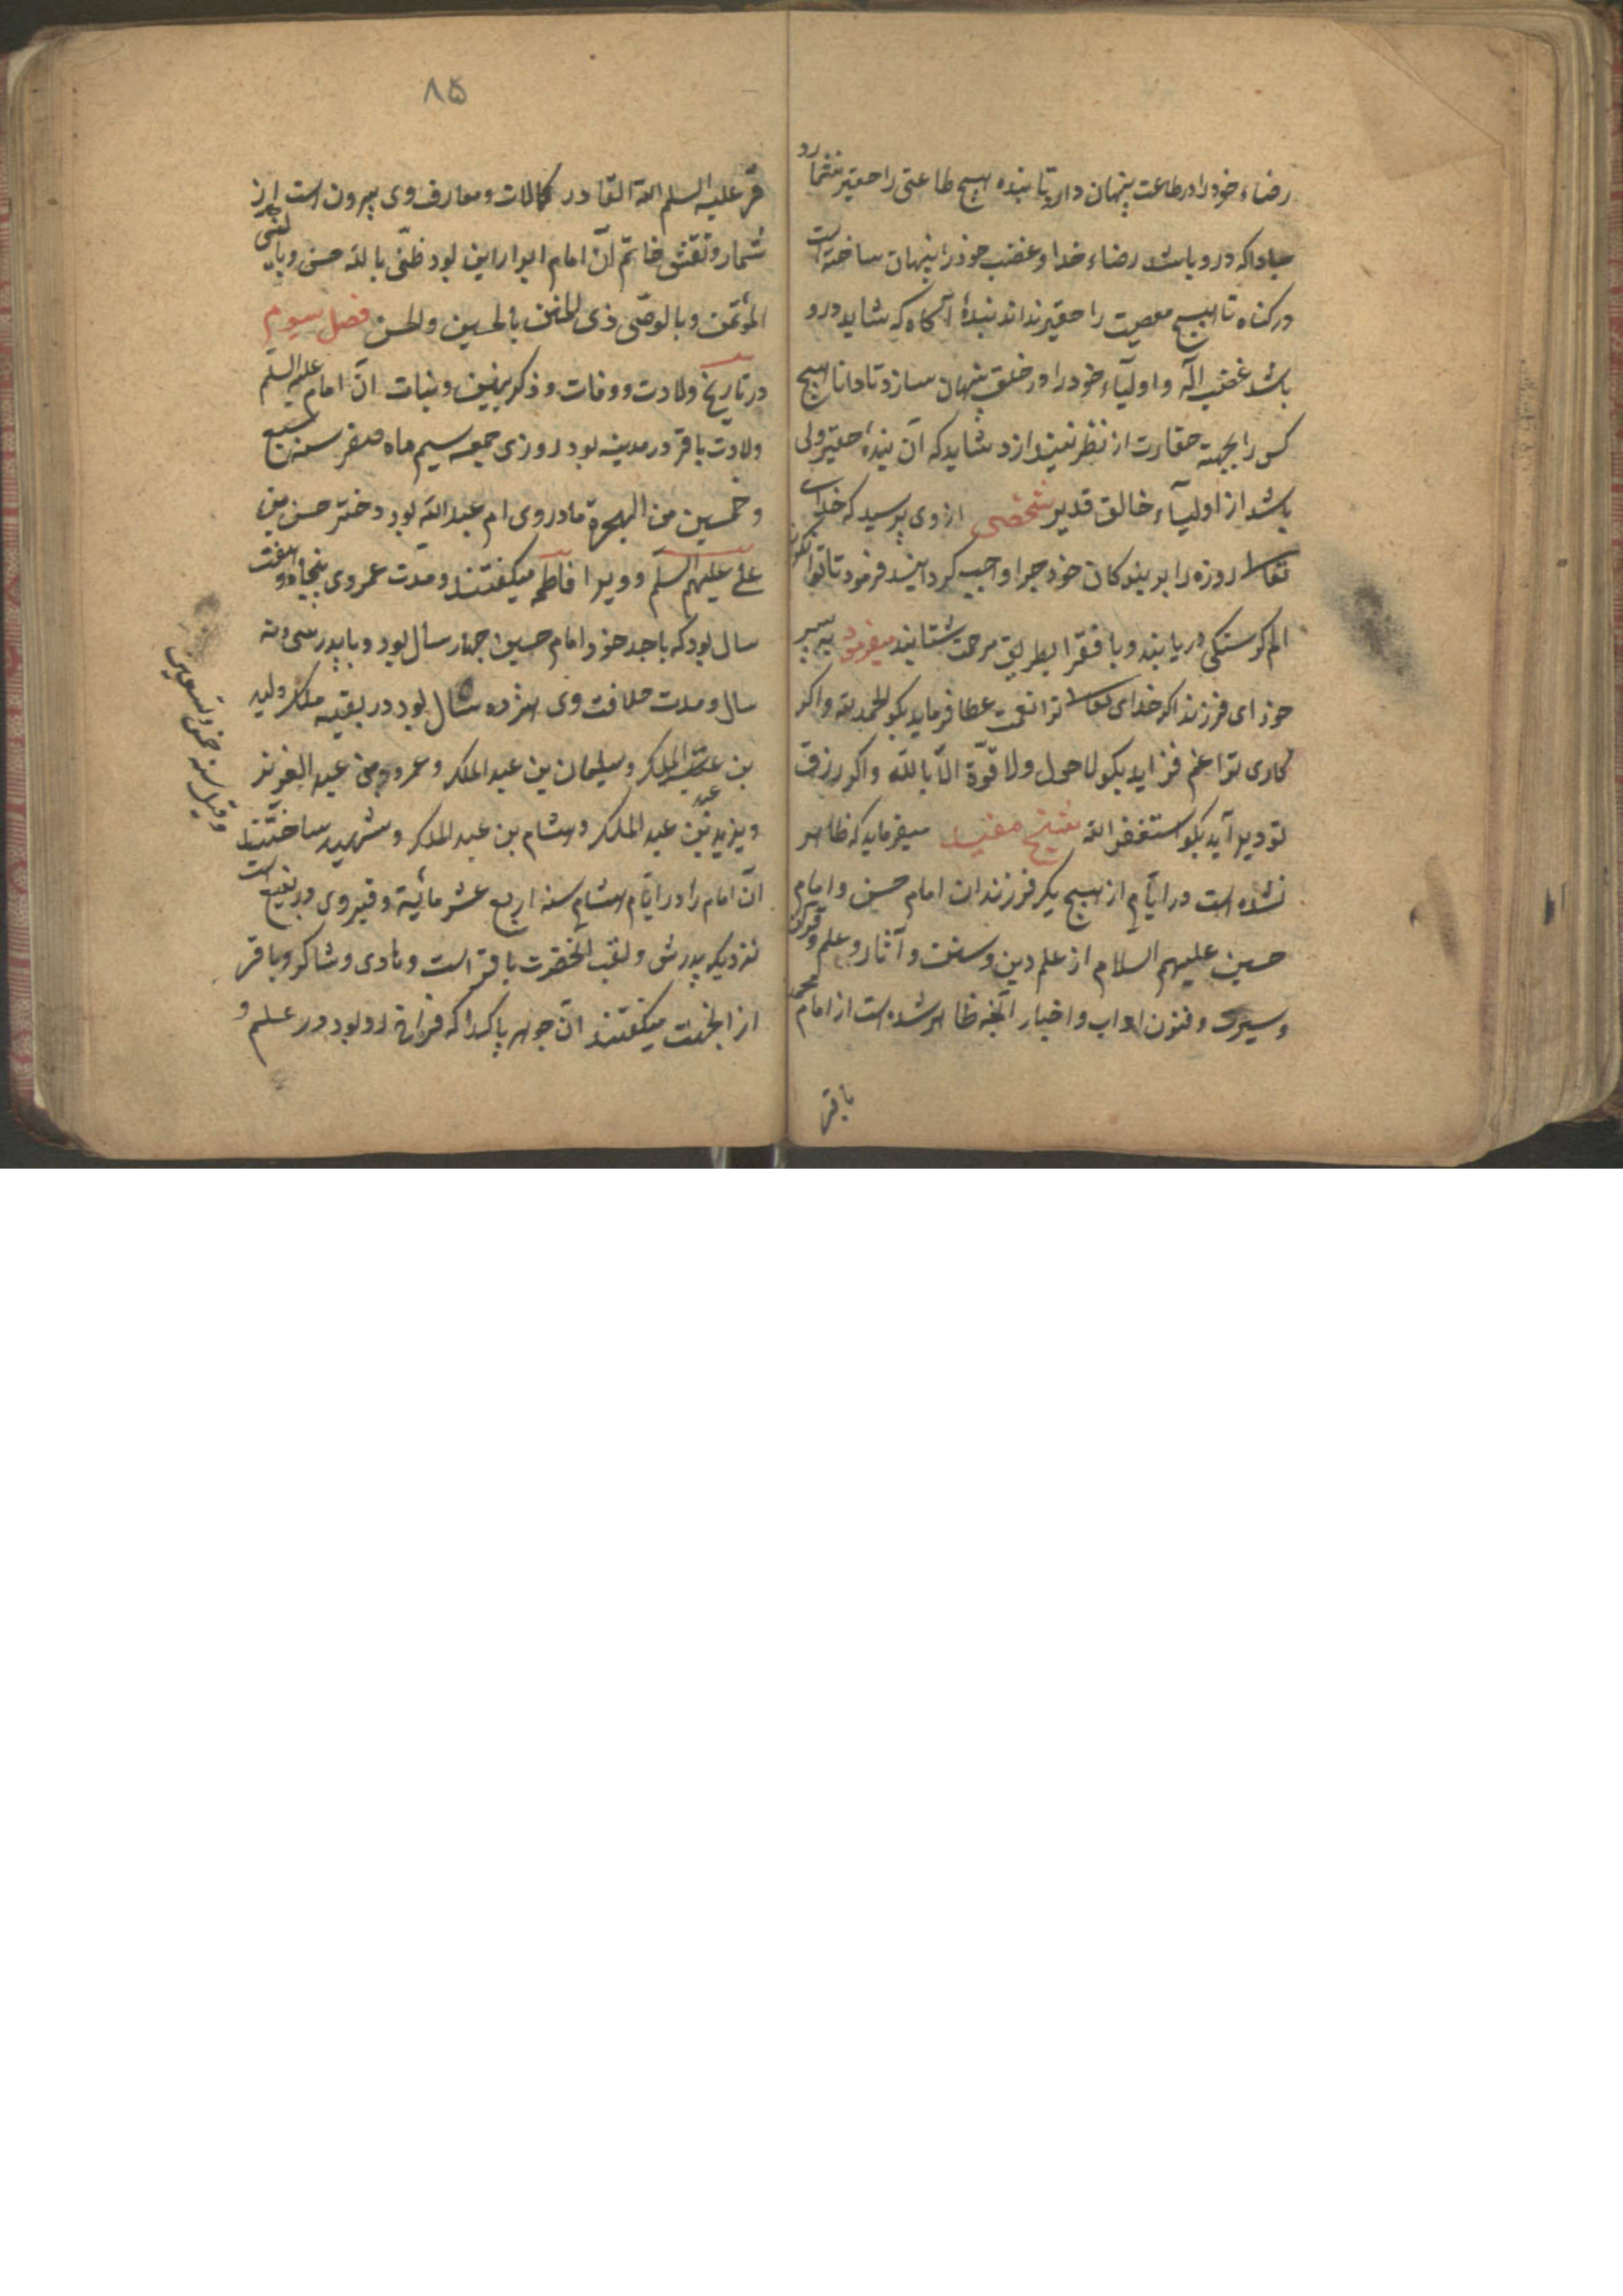 رضاء خود را در طاعت پنهان دارد تا بنده هیچ طاعتی را حقیر نشمارد
مبادا که درو باشد رضاء خدا و غضب خود را پنهان ساخته است
در کناه تا هیچ معصیت را حقیر نداند بندهٔ آکاه که شاید درو
باشد غضب اله و اولیآء خود را در خلق پنهان سازد تا دانا هیچ
کس را بجهة حقارت از نظر نیندازد شاید که آن بندهٔ حقیر ولی
باشد از اولیآء خالق قدیر شخصی از وی پرسید که خدای
تعالی روزه را بر بندکان خود چرا واجب کردانید فرمود تا توانکران
الم کرسنکی دریابند و با فقرا بطریق مرحمت شتابند میفرمود به پسر
خود ای فرزند اکر خدای تعالی ترا نعمت عطا فرماید بکو الحمد لله و اکر
کاری ترا غم فزاید بکو لا حول ولا قوّة الّا باللّه و اکر رزق
تو دیر آید بکو استغفر الله شیخ مفید میفرماید که ظاهر
نشده است در ایّام از هیچ یک فرزندان امام حسن و امام
حسین علیهم السلام از علم دین و سنت و آثار و علم قرآن
و سیرت و فنون اداب و اخبار آنچه ظاهر شده است از امام محمد
باقر
۸۵
قر علیه السلم الله القادر کمالات و معارف وی بیرون است از حد
شمار و نقش خاتم آن امام ابرار این بود ظنّی بالله حسن و بالنبی
المؤتمن و بالوصّی ذی المنن بالحسین والحسن فصل سیوم
در تاریخ ولادت و وفات و ذکر بنین و بنات آن امام علیه السلم
ولادت باقر در مدینه بود روزی جمعه سیم ماه صفر سنه سبع
و خمسین من الهجرة مادر وی ام عبد الله بود دختر حسن بن
علی علیهم السلم و ویرا فاطمه میکفتند و مدت عمر وی پنجاه و هفت
سال بود که با جد خود امام حسین چهار سال بود و با پدر سی و نه
سال و مدت خلافت وی هژده سال بود در بقیه ملک ولید
بن عبد الملک و سلیمان بن عبد الملک و عمرو بن عبد العزیز
و یزید بن عبد الملک و هشام بن عبد الملک و شهید ساختند
آن امام را در ایّام هشام سنه اربع عشر مائة و قبر وی در بقیع است
نزدیک پدرش و لقب آنحضرت باقر است و هادی و شاکر و باقر
از آنجهت میکفتند آن جوهر پاک را که فراخ رو بود در علم و
وقیل سنه خمس و تسعین